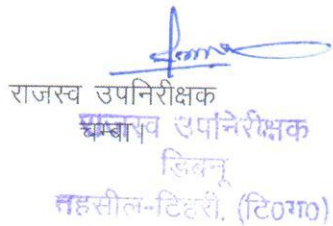 राजस्व उपनिरीक्षक
चम्बा।
राजस्व उपनिरीक्षक
डिबनू
तहसील-टिहरी, (टि०ग०)